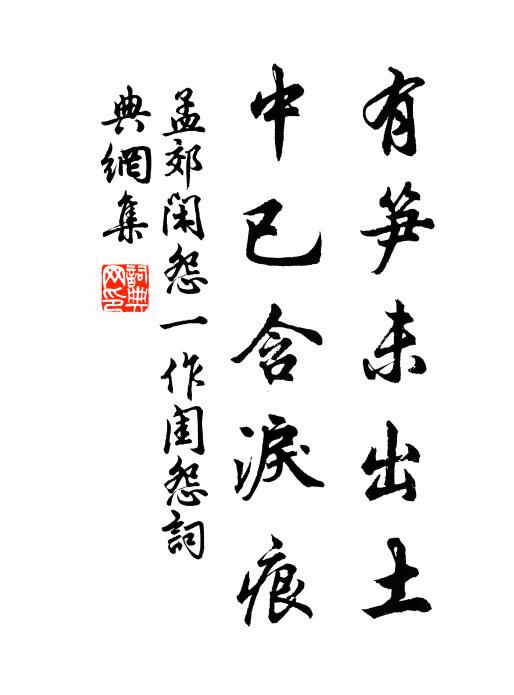 有笋未出土
中已含淚痕
孟郊闲怨一作閨怨詞
典網集
詞典網印